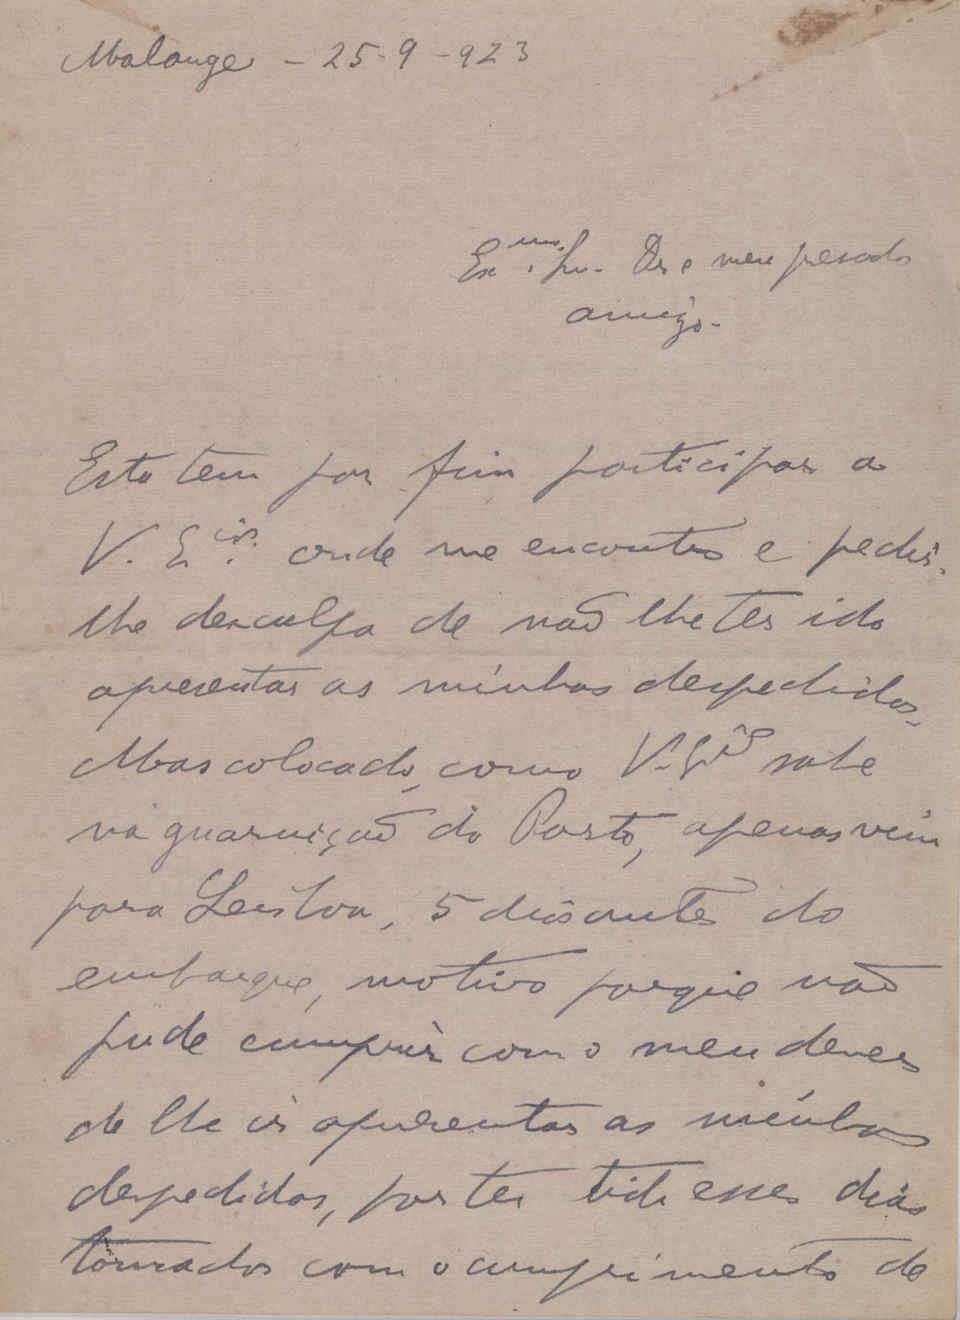 Malange - 25-9-923
Exmo. Snr. Dr e meu presado
amigo.
Esta tem por fim participar a
V. Ecia. onde me encontro e pedir-
lhe desculpa de não lhe ter ido
apresentar as minhas despedidas.
Mas colocado, como V. Ecia sabe
na guarnição do Porto, apenas vim
para Lisboa, 5 dias antes do
embarque, motivo porque não
pude cumprir com o meu dever
de lhe ir apresentar as minhas
despedidas, por ter tido esses dias
tomados com o cumprimento de